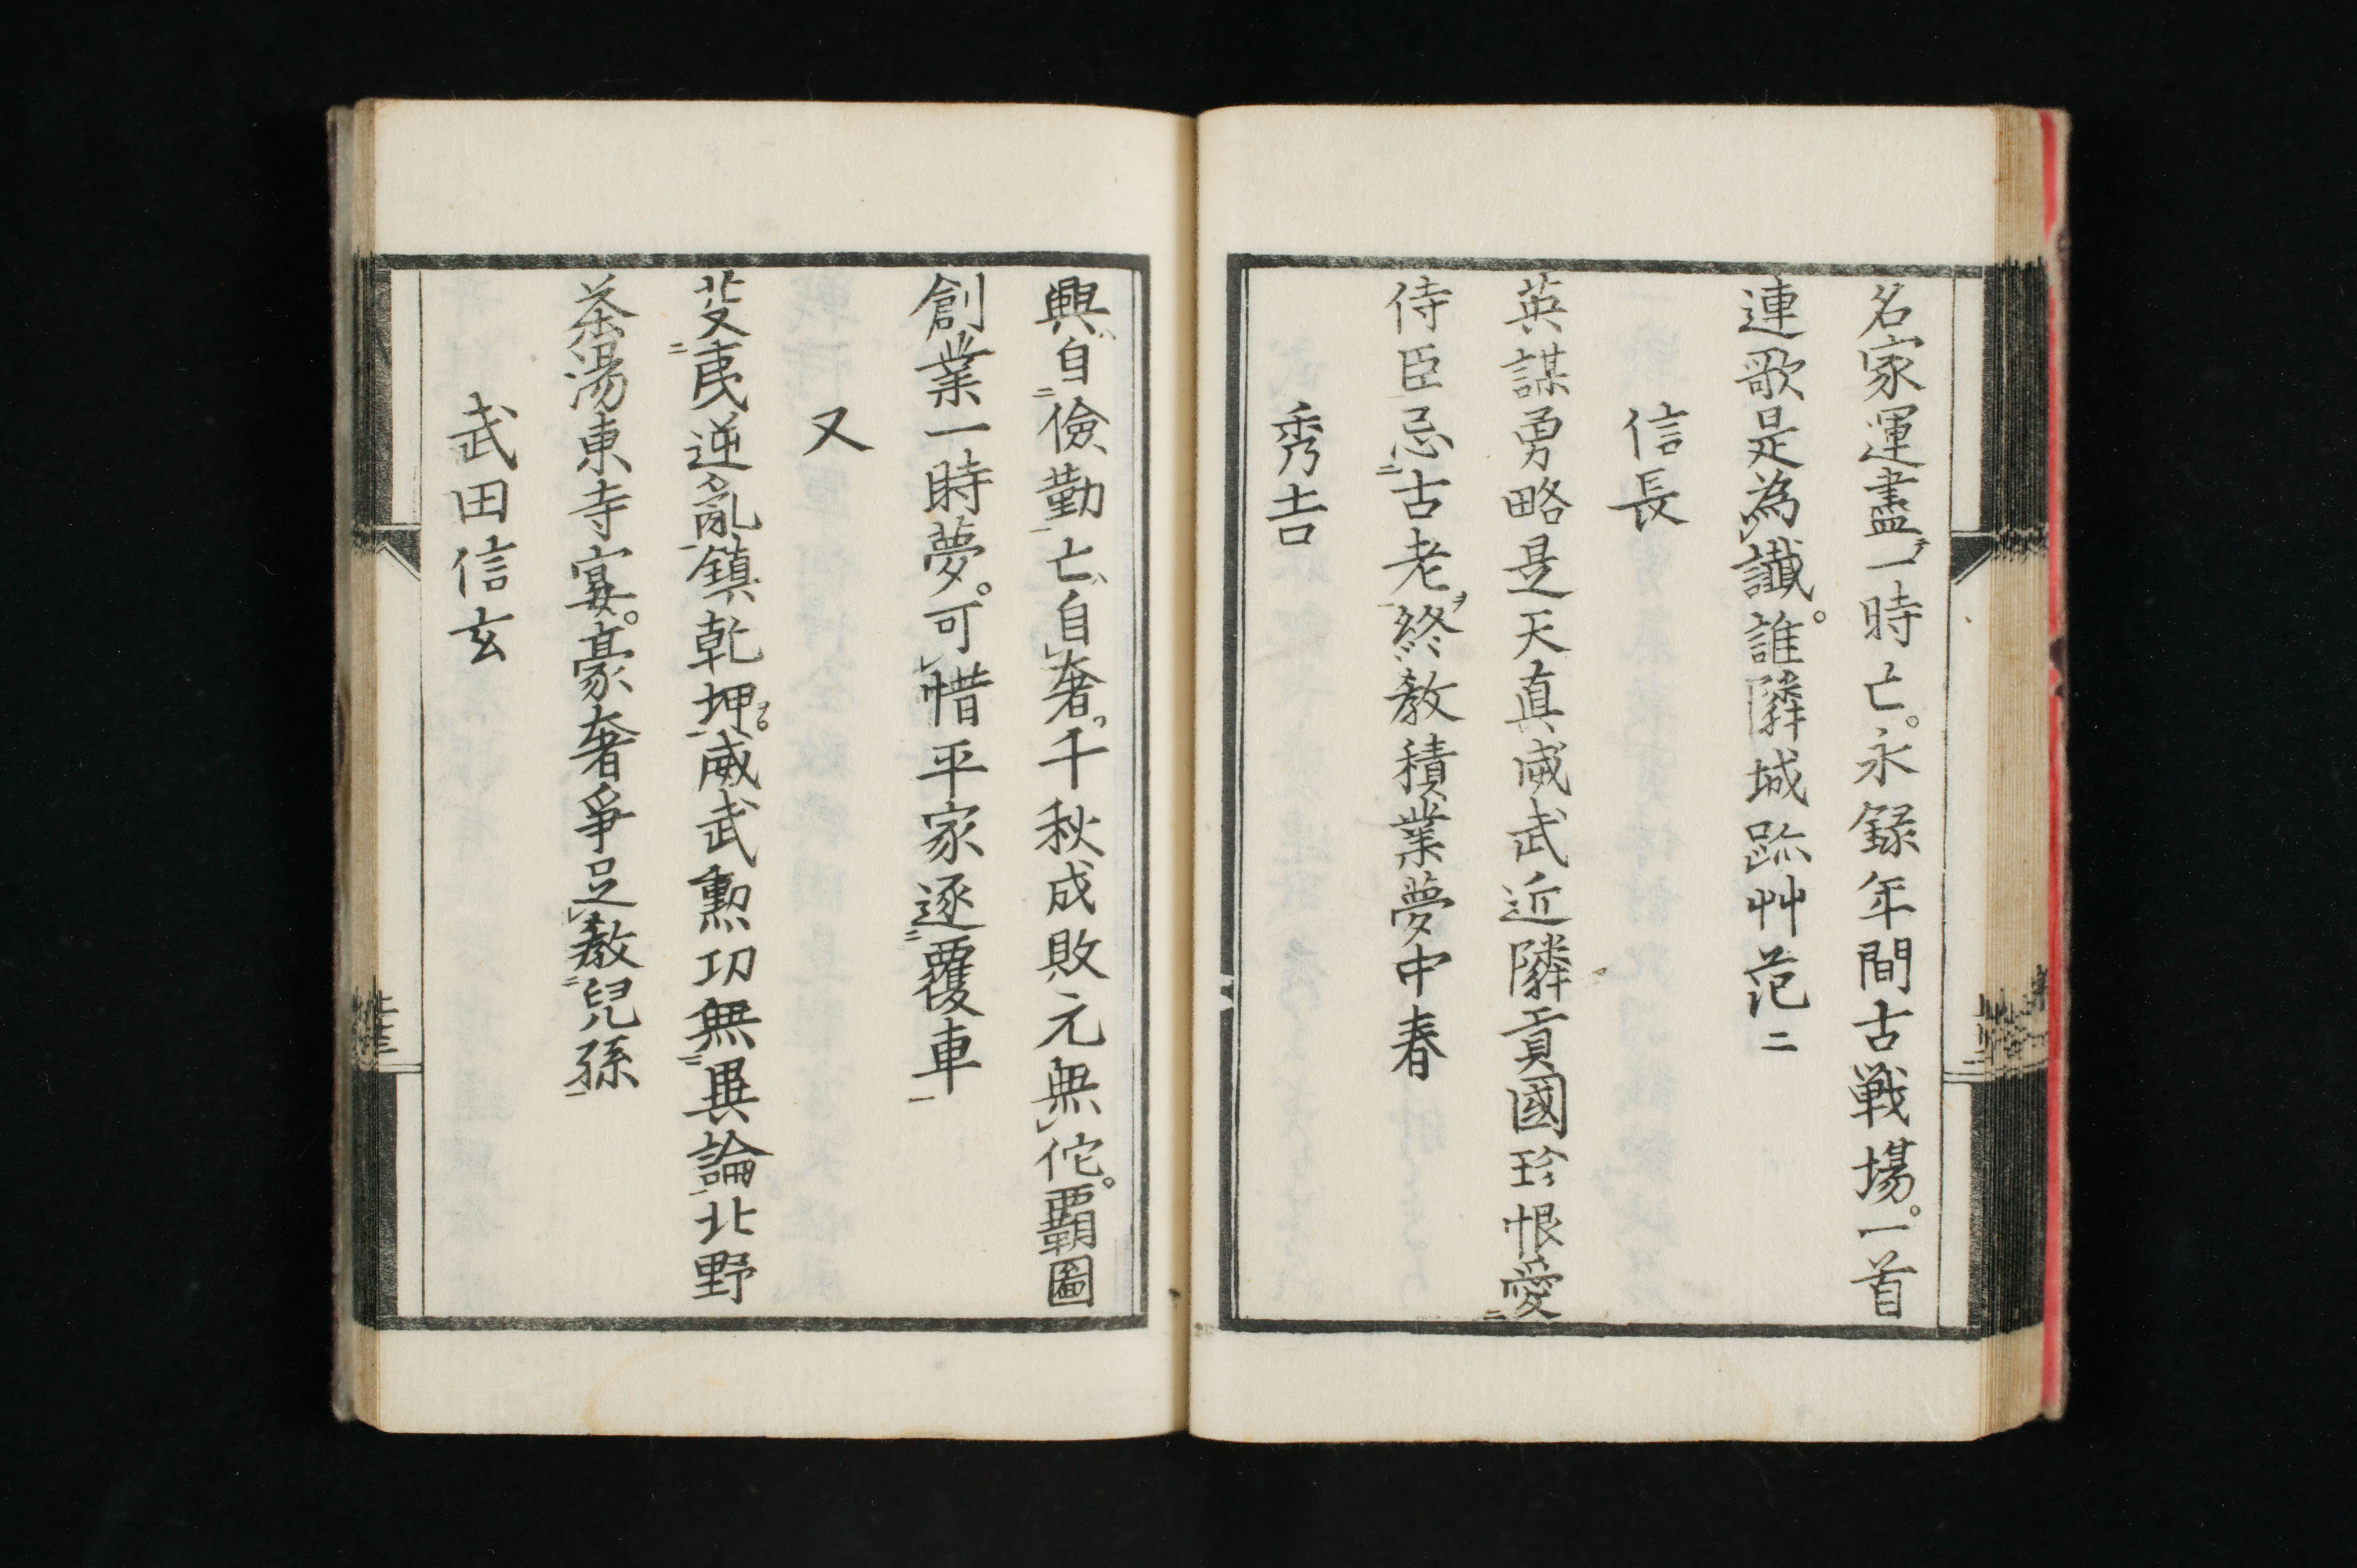 名家運盡一時亡。永錄年間古戰場。一首
連歌是為讖。誰隣城跡艸茫〻
信長
英謀勇略是天真威武近隣貢國珍恨愛
侍臣忌古老ヲ終教積業夢中春
秀吉
興自儉勤亡自奢。千秋成敗元無佗。覇圖
創業一時夢。可惜平家逐覆車
又
芟夷逆亂鎮乾坤ヲ。威武勲功無異論北野
茶湯東寺宴。豪奢爭足教兒孫
武田信玄